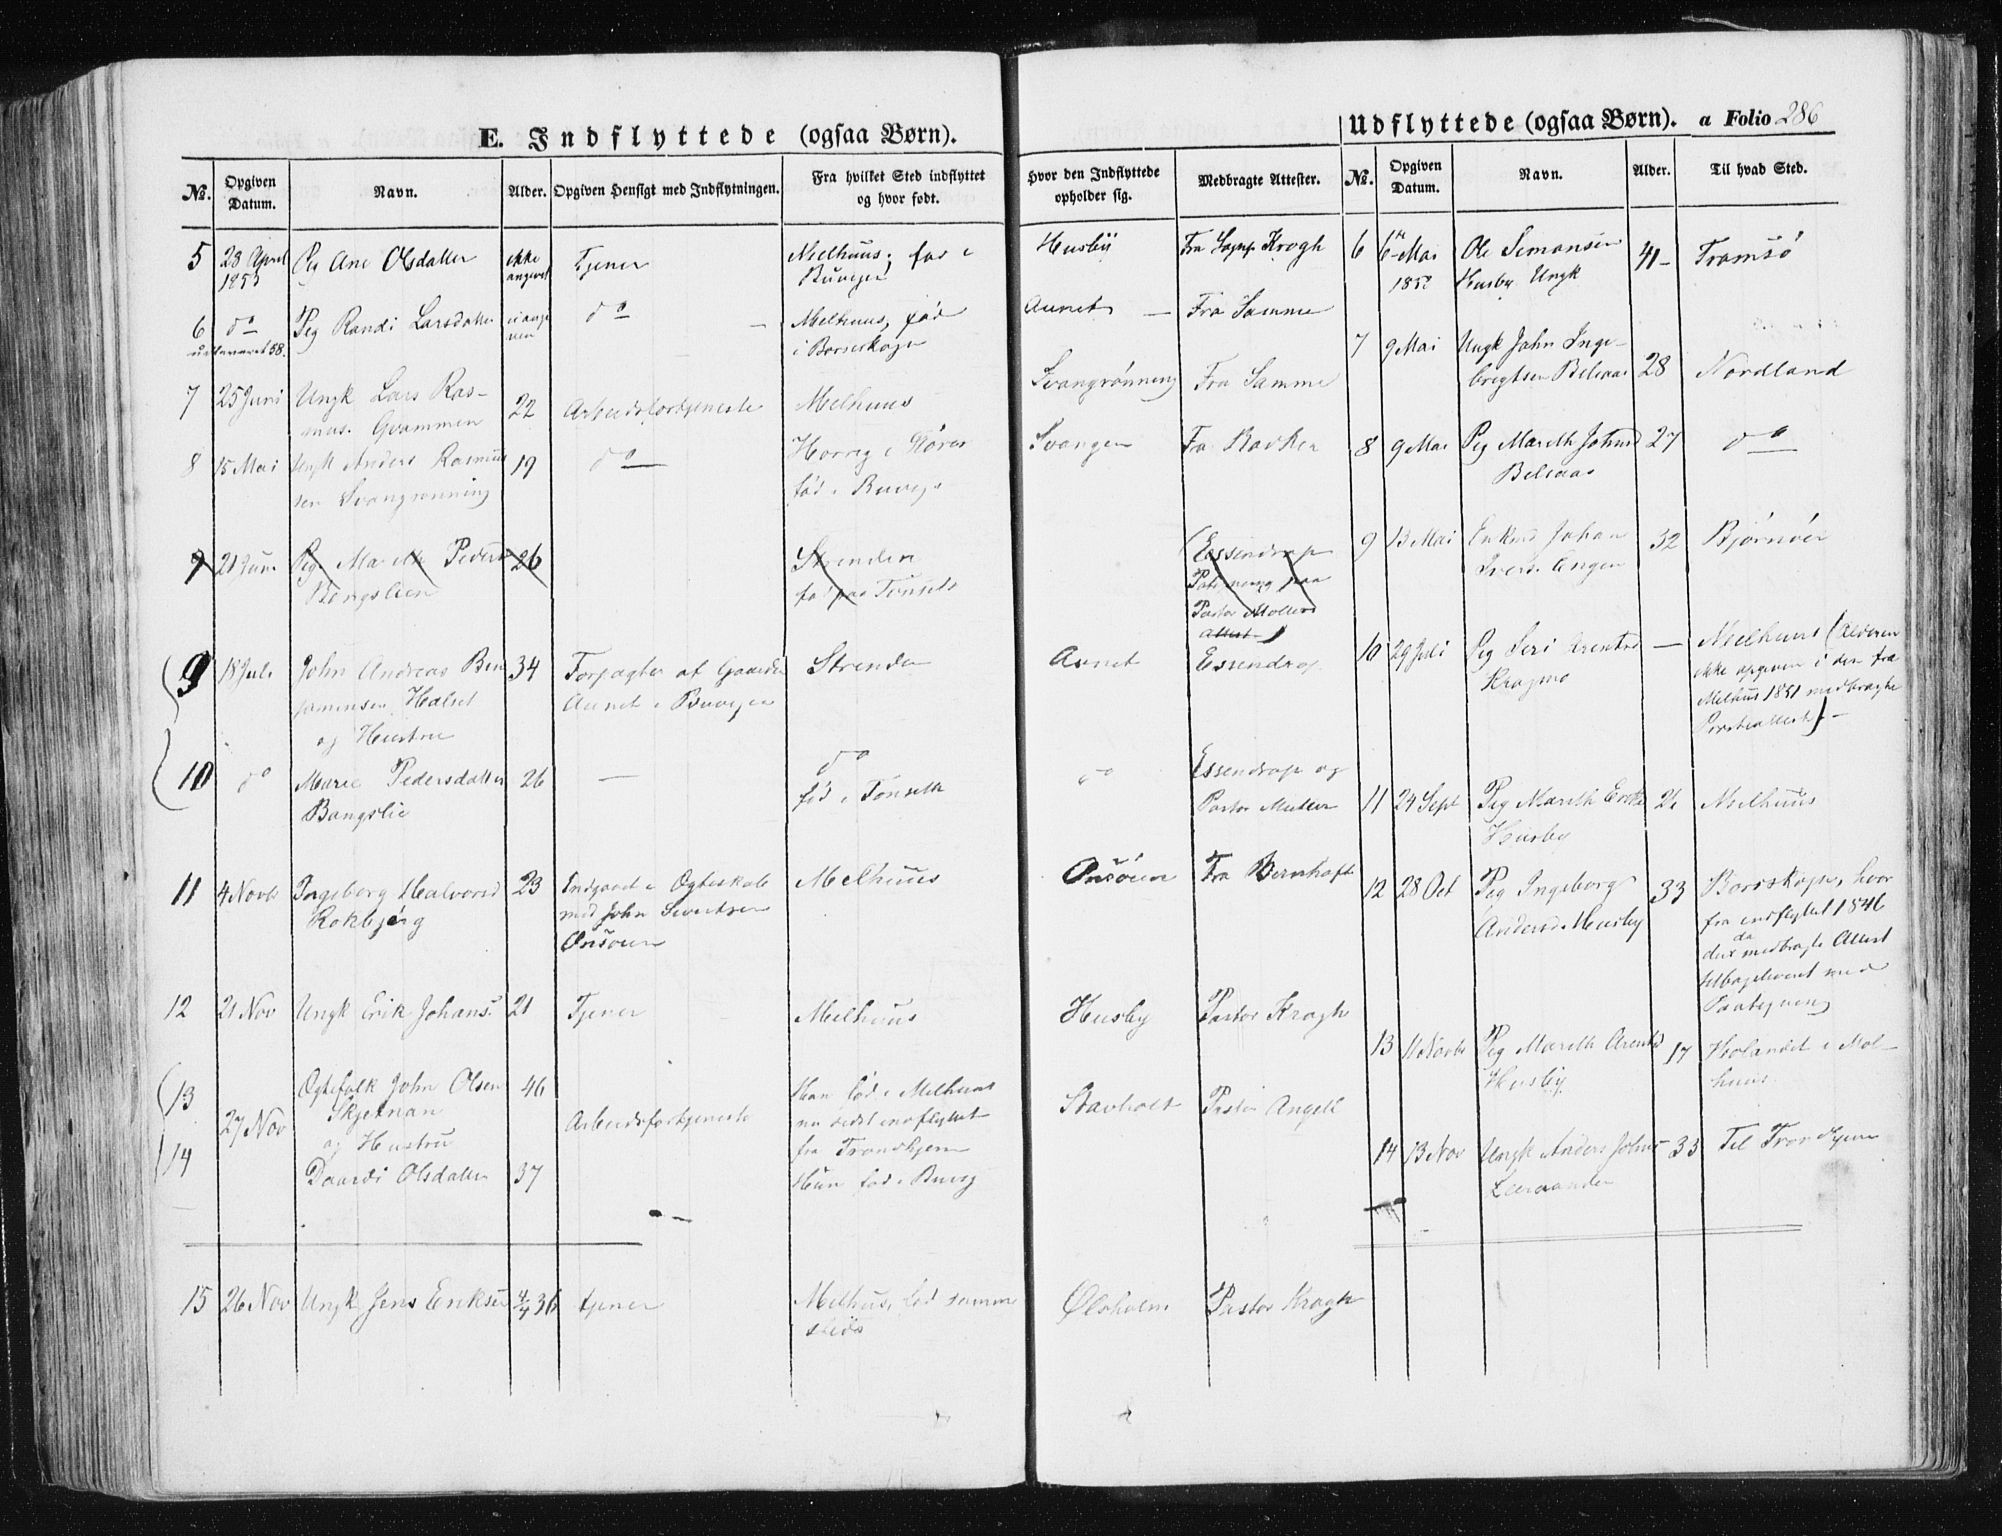 E. Indflyttede (ogsaa Børn).
Udflyttede (ogsaa Børn). a Folio 286
No. Opgiven Datum. Navn. Alder. Opgiven Hensigt med Indflytningen. Fra hvilket Sted indflyttet og hvor født. Hvor den Indflyttede opholder sig. Medbragte Attester.
No. Opgiven Datum. Navn. Alder. Til hvad Sted.
5 28 April Pig Ane Olsdatter ikke Tjener Melhuus, fød i Husby Fra Krogh
1853 angivet Buvigen
6 do Pig Randi Larsdatter do Melhuus, fød Aunet Fra Samme
i Børseskogn
7 25 Juni Ungk Lars Ras- 22 Arbeidsfortjeneste Melhuus Svangrønning Fra Samme
mus. Gvammen
8 15 Mai Ungk Anders Rasmus 19 do Horrig i Støren Svangen Fra
sen Svangrønning fød i Buvigen
9 21 Juni Pig Mareth Peders 26 Strinden Essendrop
Bangslien fød paa Tønset Paategning paa
Pastor Møllers
Attest
9 18 Juli John Andreas Ben 34 Forpagter af Gaarden Strinden Aunet Essendrop
jaminsen Halset Aunet i Buvigen
og Hustru
10 do Marie Pedersdatter 26 — do do Essendrop og
Bangslie fød i Tønseth Pastor Müller
11 4 Novbr Ingeborg Halvorsd 23 Indgaaet i Ægteskab Melhuus Onsøien Fra Bernhoft
Rokbjørg med John Sivertsen
Onsøien
12 21 Nov Ungk Erik Johans. 21 Tjener Melhuus Husby Pastor Krogh
13 Ægtefolk John Olsen 46 Han fød i Melhuus Stavholt Pastor Angell
27 Nov Skjetnan Arbeidsfortjeneste nu sidst indflyttet
og Hustru fra Trondhjem
14 Daardi Olsdatter 37 Hun fød i Buvig
15 26 Nov Ungk Jens Eriksen 4/4 36 tjener Melhus, fød samme Ølsholm Pastor Krogh
steds
6 6te Mai Ole Simonsen 41 Tromsø
1853 Husby Ungk
7 9 Mai Ungk John Inge- 28 Nordland
brigtsen Belsaas
8 9 Mai Pig Mareth Johnsd 27 do
Belsaas
9 13 Mai Enkem Johan 32 Bjørnøer
Ivers. Engen
10 29 Juli Pig Seri Arentsd — Melhuus (Alderen
Kragmo ikke opgiven i den fra
Melhuus 1851 medbragte
Præsteattest) —
11 24 Sept Pig Mareth Eriks Melhuus
Husby
12 28 Oct Pig Ingeborg 33 Børseskogn, hvor
Andersd. Husby fra indflyttet 1846
da
den medbragte Attest
tilbageleveret med
Paategning
13 11 Novbr Pig Mareth Arentsd 17 Hølandet i Mel-
Husby huus.
14 13 Nov Ungk Anders Johns 33 Til Trondhjem
Leeraanden